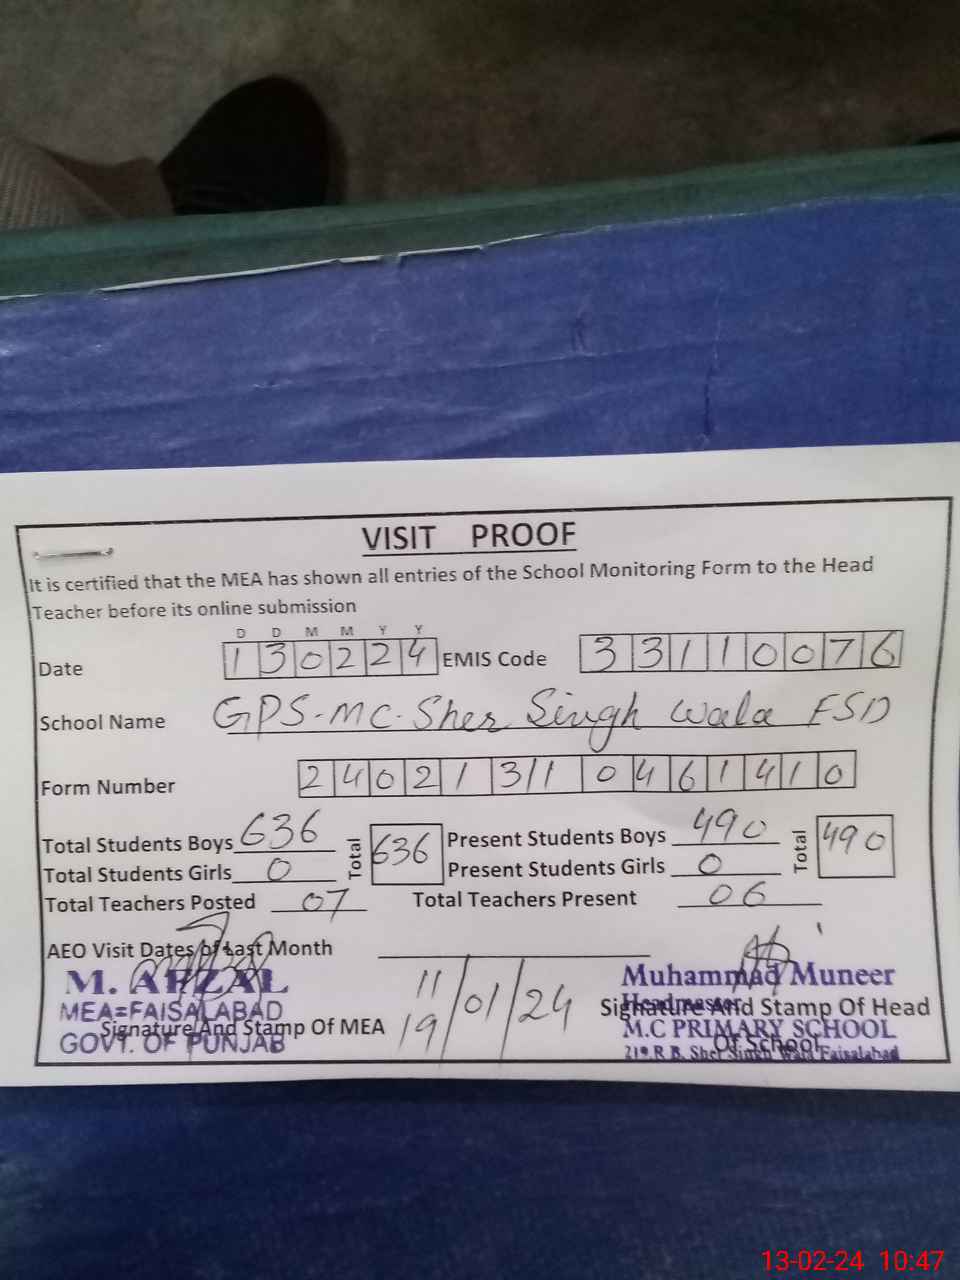 VISIT PROOF
It is certified that the MEA has shown all entries of the School Monitoring Form to the Head
Teacher before its online submission
D D M M Y Y
Date 130224 EMIS Code 33110076
School Name GPS-MC. Sher Singh Wala FSD
Form Number 240213110461410
Total Students Boys 636 Total 636 Present Students Boys 490 Total 490
Total Students Girls 0 Present Students Girls 0
Total Teachers Posted 07 Total Teachers Present 06
AEO Visit Dates of Last Month
11
19 /01/24
M. AFZAL
MEA=FAISALABAD
GOVT. OF PUNJAB
Signature And Stamp Of MEA
Muhammad Muneer
Headmaster
M.C PRIMARY SCHOOL
219.R.B. Sher Singh Wala Faisalabad
Signature And Stamp Of Head
Of School
13-02-24 10:47